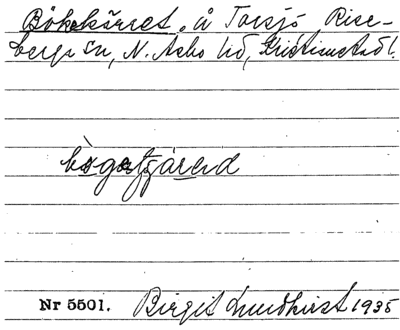 Bökekärret. å Torsjö Rise-
berga sn, N. Åsbo hd, Kristianstad l.
Nr 5501. Birgit Lundkvist 1935